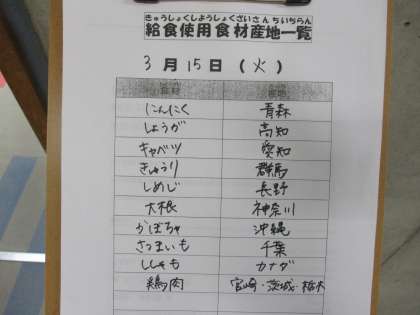 きゅうしょくしようしょくざいさんちいちらん
給食使用食材産地一覧
3月15日(火)
食材 産地
にんにく 青森
しょうが 高知
キャベツ 愛知
きゅうり 群馬
しめじ 長野
大根 神奈川
かぼちゃ 沖縄
さつまいも 千葉
ししゃも カナダ
鶏肉 宮崎・茨城・栃木